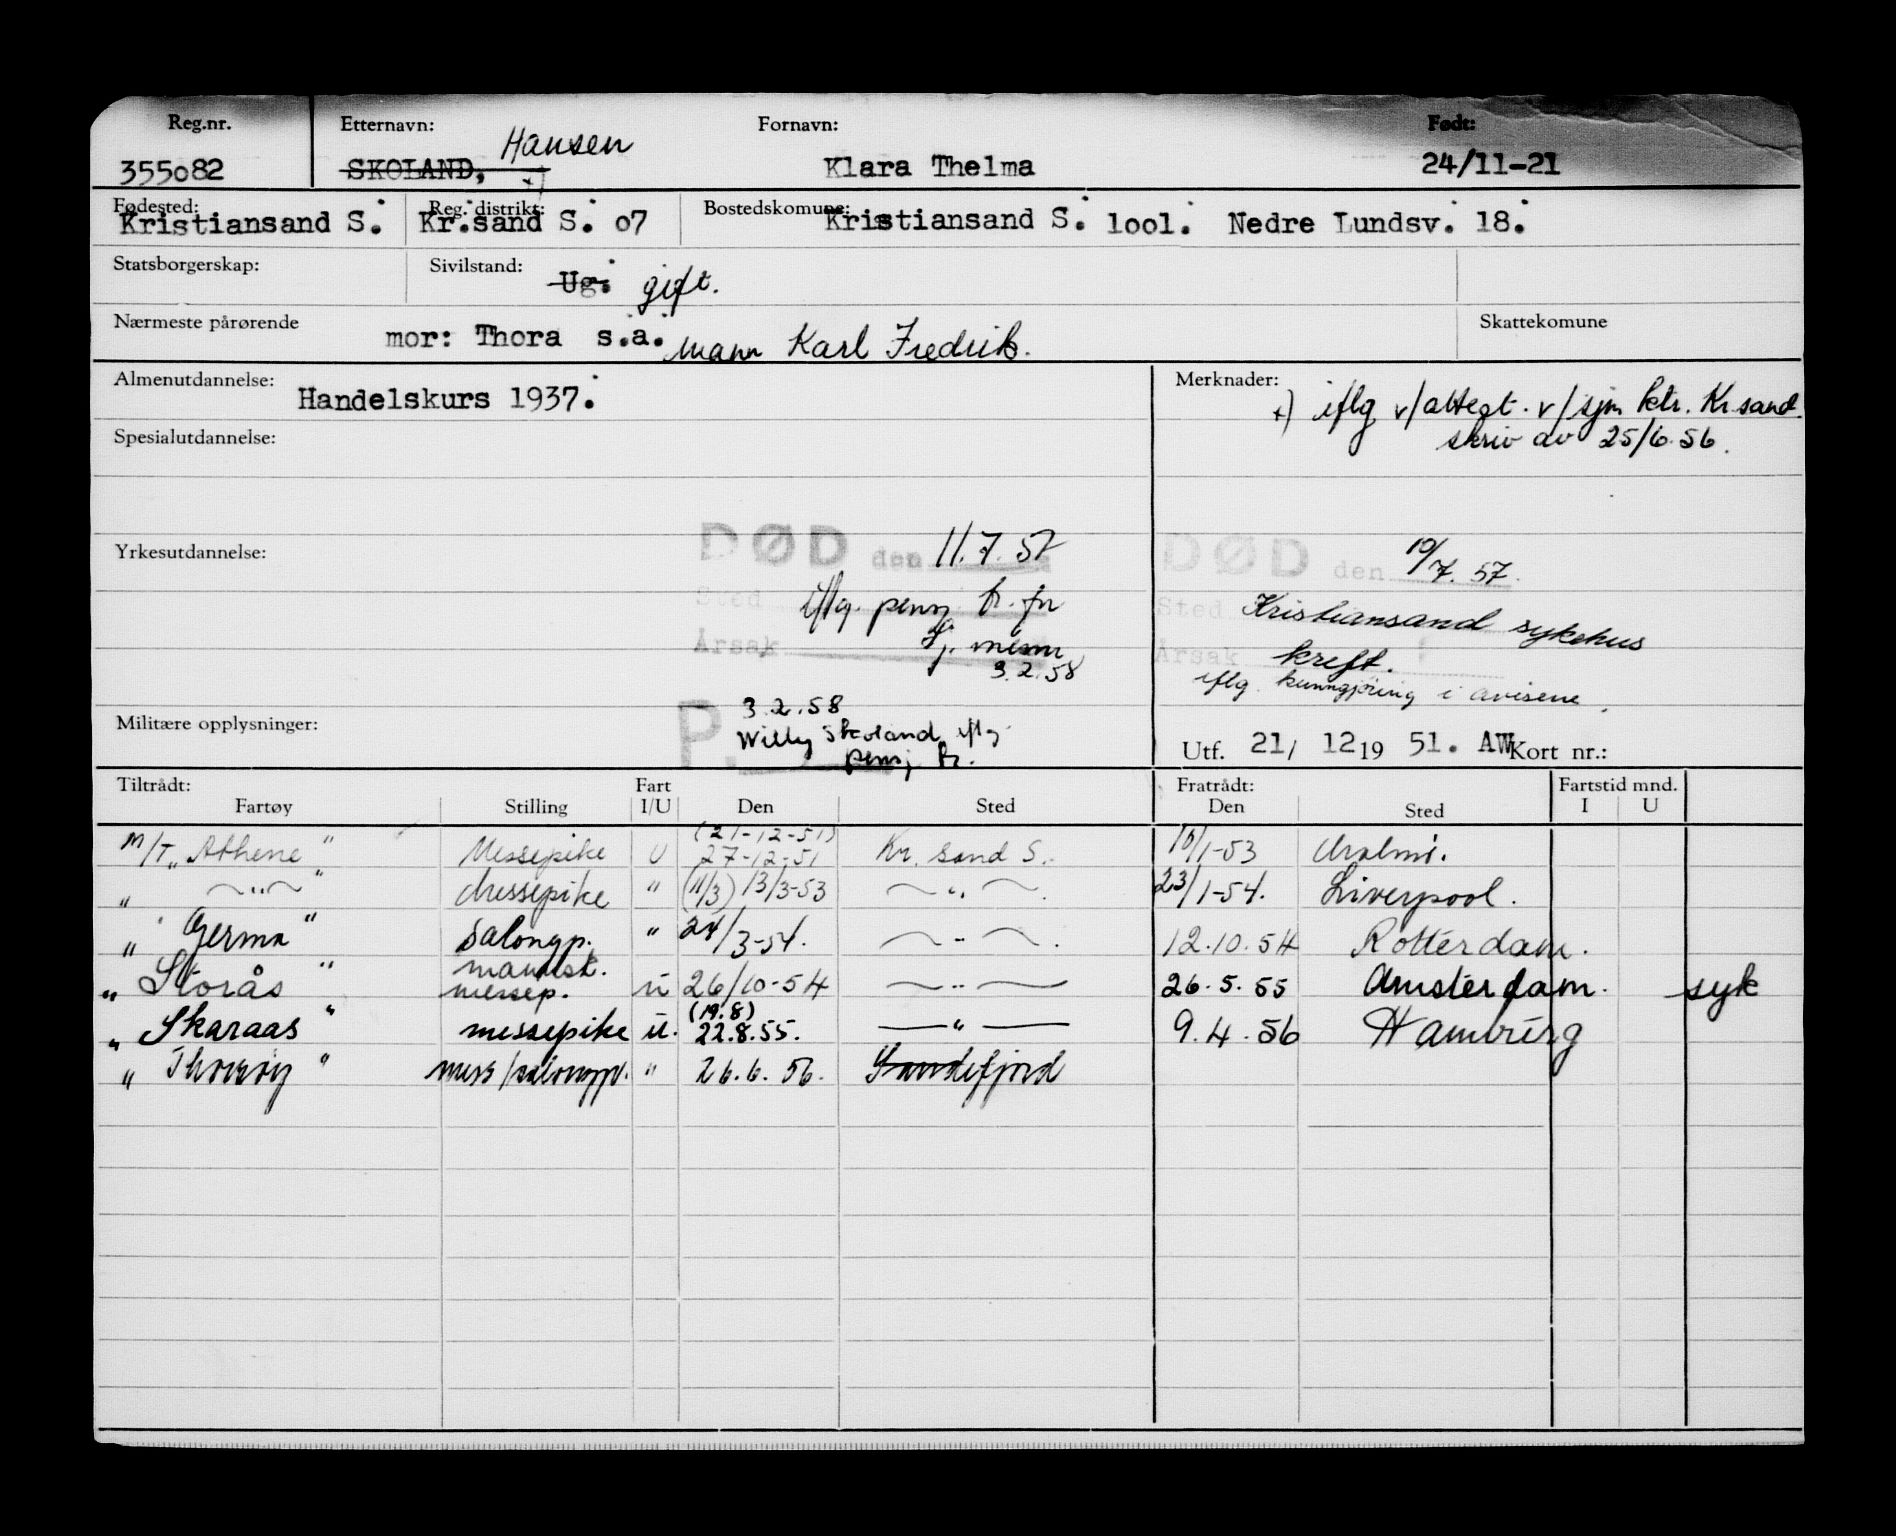 Reg.nr. Etternavn: Fornavn: Født:
355o82 SKOLAND, Hansen Klara Thelma 24/11-21
+)
Fødested: Reg. distrikt: Bostedskomune:
Kristiansand S. Kr.sand S. o7 Kristiansand S. 1ool. Nedre Lundsv. 18.
Statsborgerskap: Sivilstand: Ug. gift.
Nærmeste pårørende mor: Thora s.a. mann Karl Fredrik. Skattekomune
Almenutdannelse: Handelskurs 1937.
Merknader:
+) iflg v/attest. v/sjm ktr. Kr.sand.
skriv av 25/6.56.
Spesialutdannelse:
Yrkesutdannelse:
DØD den 11.7.57
Sted iflg. pensj. tr. for
Årsak Sj. menn
3.2.58
DØD den 10/7.57.
Sted Kristiansand sykehus
Årsak kreft.
iflg. kunngjøring i avisene.
Militære opplysninger:
P. 3.2.58
Willy Skoland iflg
pensj. tr.
Utf. 21/ 12 19 51. AW Kort nr.:
Tiltrådt: Fart Fratrådt: Fartstid mnd.
Fartøy Stilling I/U Den Sted Den Sted I U
(21-12-51)
M/T „Athene" Messepike U 27-12-51 Kr. sand S. 10/1-53 Malmö.
„ —"— " Messepike " (11/3) 13/3-53 —"— 23/1-54. Liverpool.
„ Germa " Salongp. " 24/3-54. —"— 12.10.54 Rotterdam.
mannsk.
„ Storås " messep. u 26/10-54 —"— 26.5.55 Amsterdam. syk
(19.8)
„ Skaraas " messepike u. 22.8.55. —"— 9.4.56 Hamburg
„ Thorøy " mess/salongp. " 26.6.56. Sandefjord